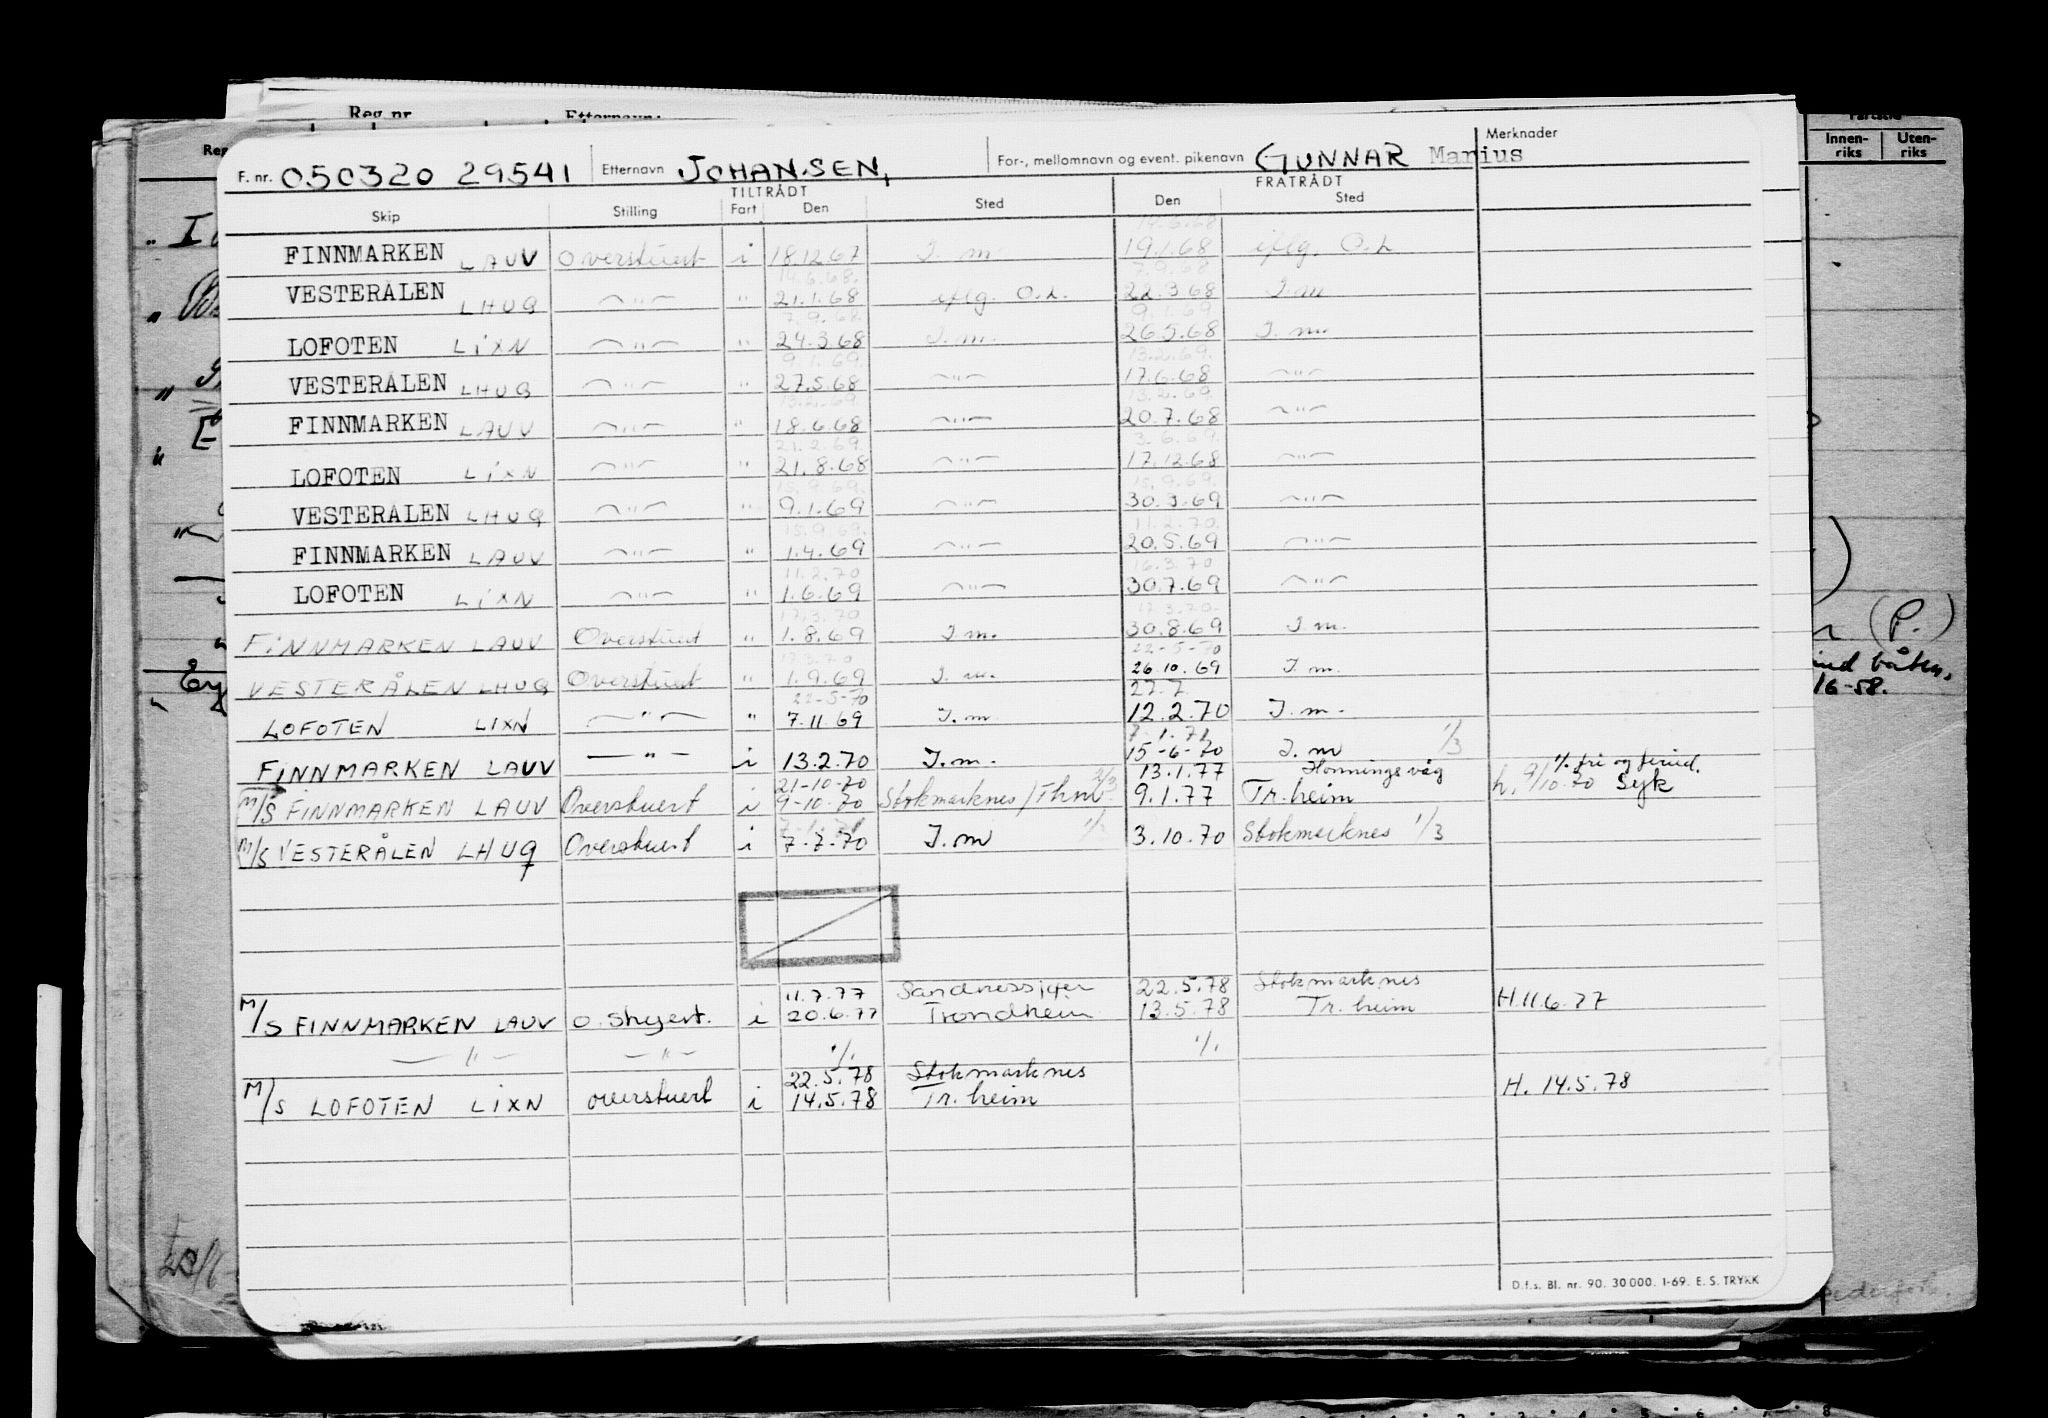 Reg.nr. Etternavn:
Fartstid
Innen-riks Uten-riks
Merknader
F. nr. 050320 29541 Etternavn JOHANSEN, For-, mellomnavn og event. pikenavn GUNNAR Marius
TILTRÅDT FRATRÅDT
Skip Stilling Fart Den Sted Den Sted
14.5.68
FINNMARKEN LAUV Overstuert i 18.12.67 J. m. 19.1.68 iflg. O.L
14.6.68. 7.9.68
VESTERÅLEN LHUQ —"— " 21.1.68 iflg. O.L. 22.3.68 J. m
7.9.68 9.1.69
LOFOTEN LIXN —"— " 24.3.68 J. m. 26.5.68 J. m.
9.1.69. 13.2.69.
VESTERÅLEN LHUQ —"— " 27.5.68 —"— 17.6.68 —"—
13.2.69. 13.2.69.
FINNMARKEN LAUV —"— " 18.6.68 —"— 20.7.68 —"—
21.2.69 3.6.69.
LOFOTEN LIXN —"— " 21.8.68 —"— 17.12.68 —"—
15.9.69. 15.9.69.
VESTERÅLEN LHUQ —"— " 9.1.69 —"— 30.3.69 —"—
15.9.69. 11.2.70.
FINNMARKEN LAUV —"— " 1.4.69 —"— 20.5.69 —"—
11.2.70 16.3.70
LOFOTEN LIXN —"— " 1.6.69 —"— 30.7.69 —"—
17.3.70 17.3.70.
FINNMARKEN LAUV Overstuert " 1.8.69 J. m. 30.8.69 J. m.
17.3.70 22-5-70
VESTERÅLEN LHUQ Overstuert " 1.9.69 J. m. 26.10.69 J. m.
22-5-70 27.7
LOFOTEN LIXN —"— " 7.11.69 J. m 12.2.70 J. m.
7.1.71
FINNMARKEN LAUV —"— i 13.2.70 J. m. 15-6-70 J. m 1/3
21-10-70 2/3 13.1.77 Honningsvåg % fri og feried.
M/S FINNMARKEN LAUV Overstuert i 9-10-70 Stokmarknes/Thm 9.1.77 Tr.heim h. 9/10.70 Syk
M/S VESTERÅLEN LHUQ Overstuert i 7-7-70 J. m 1/3 3.10.70 Stokmarknes 1/3
11.7.77 Sandnessjøen 22.5.78 Stokmarknes
M/S FINNMARKEN LAUV O. Stygert. i 20.6.77 Trondheim 13.5.78 Tr.heim H.11.6.77
—"— —"— ./. ./.
22.5.78 Stokmarknes
M/S LOFOTEN LIXN overstuert i 14.5.78 Tr.heim H. 14.5.78
(P.)
båten.
16-58.
D.f.s. Bl. nr. 90. 30 000. 1-69. E. S. TRYKK